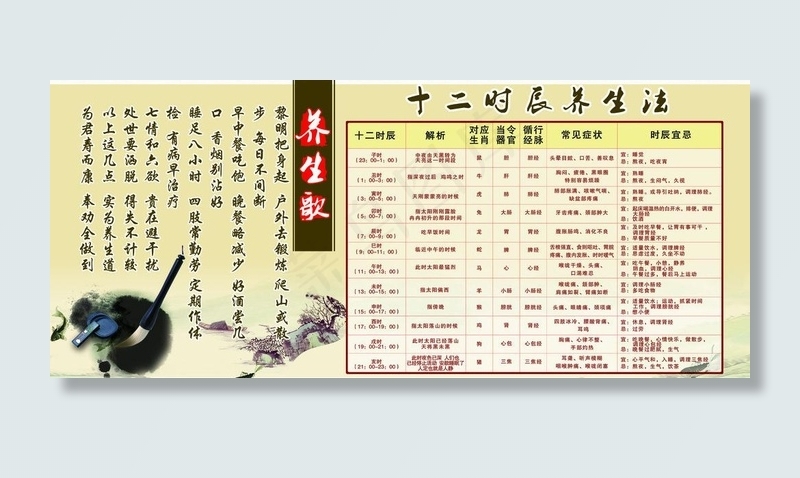 养生歌
黎明把身起 户外去锻炼 爬山或散
步 每日不间断
早中餐吃饱 晚餐略减少 好酒尝几
口 香烟别沾好
睡足八小时 四肢常勤劳 定期作体
检 有病早治疗
七情和六欲 贵在避干扰
处世要洒脱 得失不计较
以上这几点 实为养生道
为君寿而康 奉劝全做到
十二时辰养生法
十二时辰 解析 对应生肖 当令器官 循行经脉 常见症状 时辰宜忌
子时 (23:00-1:00) 中夜由天黑转为天亮这一时间段 鼠 胆 胆经 头晕目眩、口苦、善叹息 宜：睡觉 忌：熬夜，吃夜宵
丑时 (1:00-3:00) 指深夜过后 鸡鸣之时 牛 肝 肝经 胸闷、疲倦、黑眼圈 特别容易烦躁 宜：熟睡 忌：熬夜，生闷气，久视
寅时 (3:00-5:00) 天刚蒙蒙亮的时候 虎 肺 肺经 肺部胀满、咳嗽气喘、缺盆部疼痛 宜：熟睡，或导引吐纳，调理肺经。 忌：熬夜
卯时 (5:00-7:00) 指太阳刚刚露脸 冉冉初升的那段时间 兔 大肠 大肠经 牙齿疼痛、颈部肿大 宜：起床喝温热的白开水，排便，调理大肠经 忌：饮酒
辰时 (7:00-9:00) 吃早饭时间 龙 胃 胃经 腹胀肠鸣，消化不良 宜：及时吃早餐，让胃有事可干，调理胃 忌：早餐质量不好
巳时 (9:00-11:00) 临近中午的时候 蛇 脾 脾经 舌根强直、食则呕吐、胃脘疼痛、腹内发胀、时时嗳气 宜：适量饮水；调理脾经 忌：思虑过度，久坐不动
午时 (11:00-13:00) 此时太阳最猛烈 马 心 心经 喉咙干燥、头痛、口渴难忍 宜：吃午餐，小憩，静养阴血，调理心经 忌：午餐过多，餐后马上运动
未时 (13:00-15:00) 指太阳偏西 羊 小肠 小肠经 喉咙痛、颈部肿、肩痛如裂、臂痛如断 宜：调理小肠经 忌：多吃食物
申时 (15:00-17:00) 指傍晚 猴 膀胱 膀胱经 头痛、眼睛痛、颈项痛 宜：适量饮水；运动，抓紧时间工作，调理膀胱经 忌：憋小便
酉时 (17:00-19:00) 指太阳落山的时候 鸡 肾 肾经 四肢冰冷、腰酸背痛、耳鸣 宜：休息，调理肾经 忌：过劳
戌时 (19:00-21:00) 此时太阳已经落山 天将黑未黑 狗 心包 心包经 胸痛、心律不整、手部灼热 宜：吃晚餐，心情快乐，做散步，调理心包经 忌：晚餐过肥腻，生气
亥时 (21:00-23:00) 此时夜色已深 人们也已经停止活动 安歇睡眠了 人定也就是人静 猪 三焦 三焦经 耳聋、听声模糊 咽喉肿痛、喉咙闭塞 宜：心平气和，入睡，调理三焦经 忌：熬夜，生气，饮茶